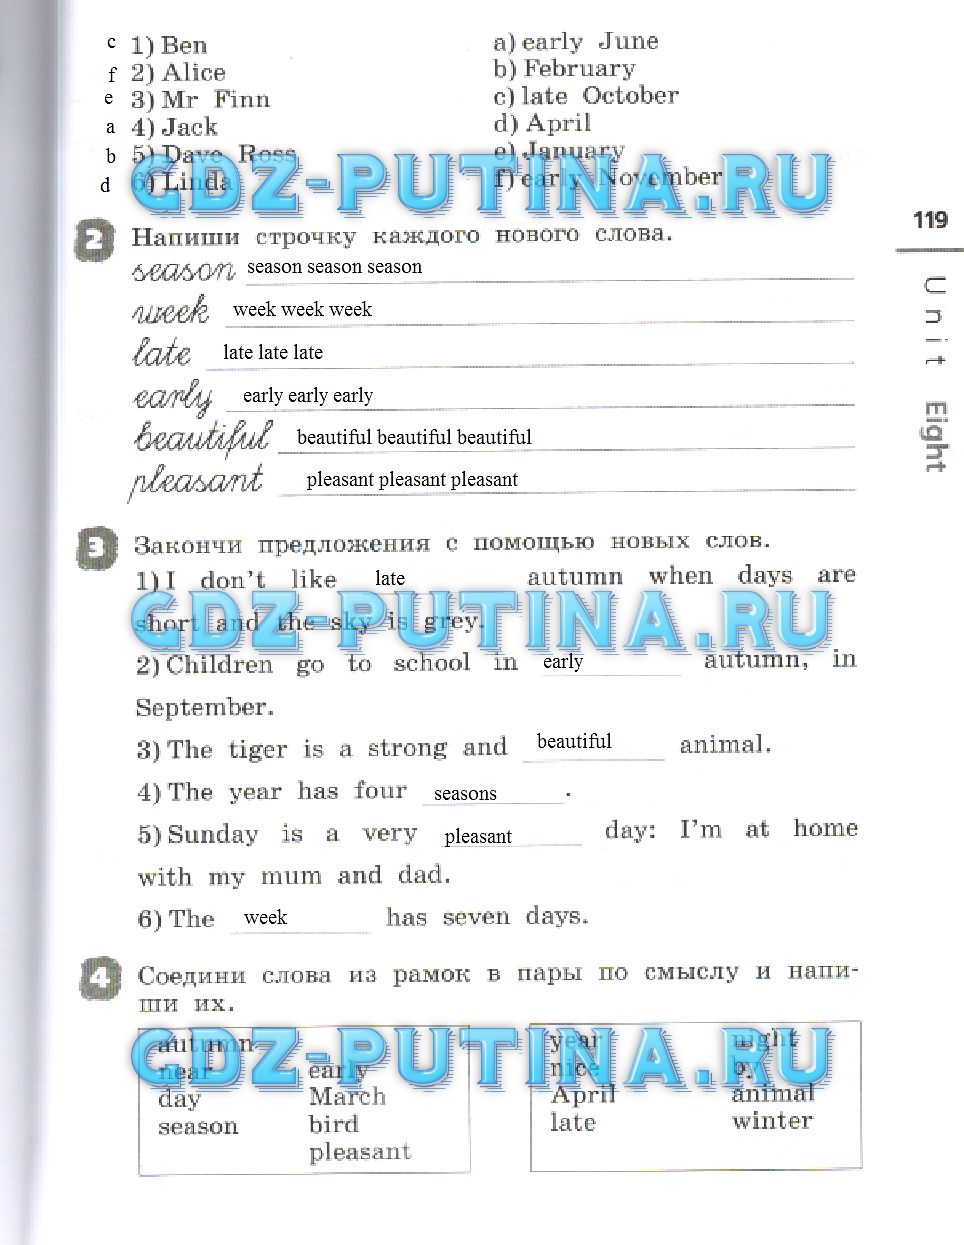 c 1) Ben a) early June
f 2) Alice b) February
e 3) Mr Finn c) late October
a 4) Jack d) April
b 5) Dave Ross e) January
d 6) Linda f) early November
GDZ-PUTINA.RU
119
2 Напиши строчку каждого нового слова.
season season season season
week week week week
late late late late
early early early early
beautiful beautiful beautiful beautiful
pleasant pleasant pleasant pleasant
Unit Eight
3 Закончи предложения с помощью новых слов.
1) I don't like late autumn when days are
short and the sky is grey.
GDZ-PUTINA.RU
2) Children go to school in early autumn, in
September.
3) The tiger is a strong and beautiful animal.
4) The year has four seasons.
5) Sunday is a very pleasant day: I'm at home
with my mum and dad.
6) The week has seven days.
4 Соедини слова из рамок в пары по смыслу и напи-
ши их.
autumn year night
near early nice by
GDZ-PUTINA.RU
day March April animal
season bird late winter
pleasant